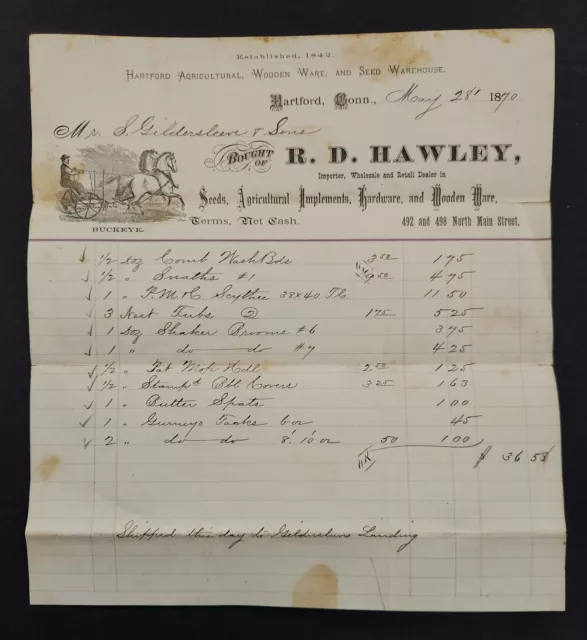 Established, 1842.
Hartford Agricultural, Wooden Ware, and Seed Warehouse.
Hartford, Conn., May 28' 1870
Mr. S. Gildersleeve & Sons
Bought of R. D. HAWLEY,
Importer, Wholesale and Retail Dealer in
Seeds, Agricultural Implements, Hardware, and Wooden Ware,
BUCKEYE.
Terms, Net Cash. 492 and 498 North Main Street.
1/2 doz Comb Wash Bds 3 50 1 75
1/2 " Snaths #1 9 50 4 75
1 " Scythes 38x40 11 50
3 Nest Tubs 2 175 5 25
1 doz Shaker Brooms #6 3 75
1 " do do #7 4 25
1/2 " Pat Mop Hdl 2 50 1 25
1/2 " Stampd Covers 3 25 1 63
1 " Butter Spats 1 00
1 " Gurneys Tacks 6 oz 45
2 " do do 8' 10 oz 50 1 00
$ 36 58
Shipped this day to Gildersleeve Landing